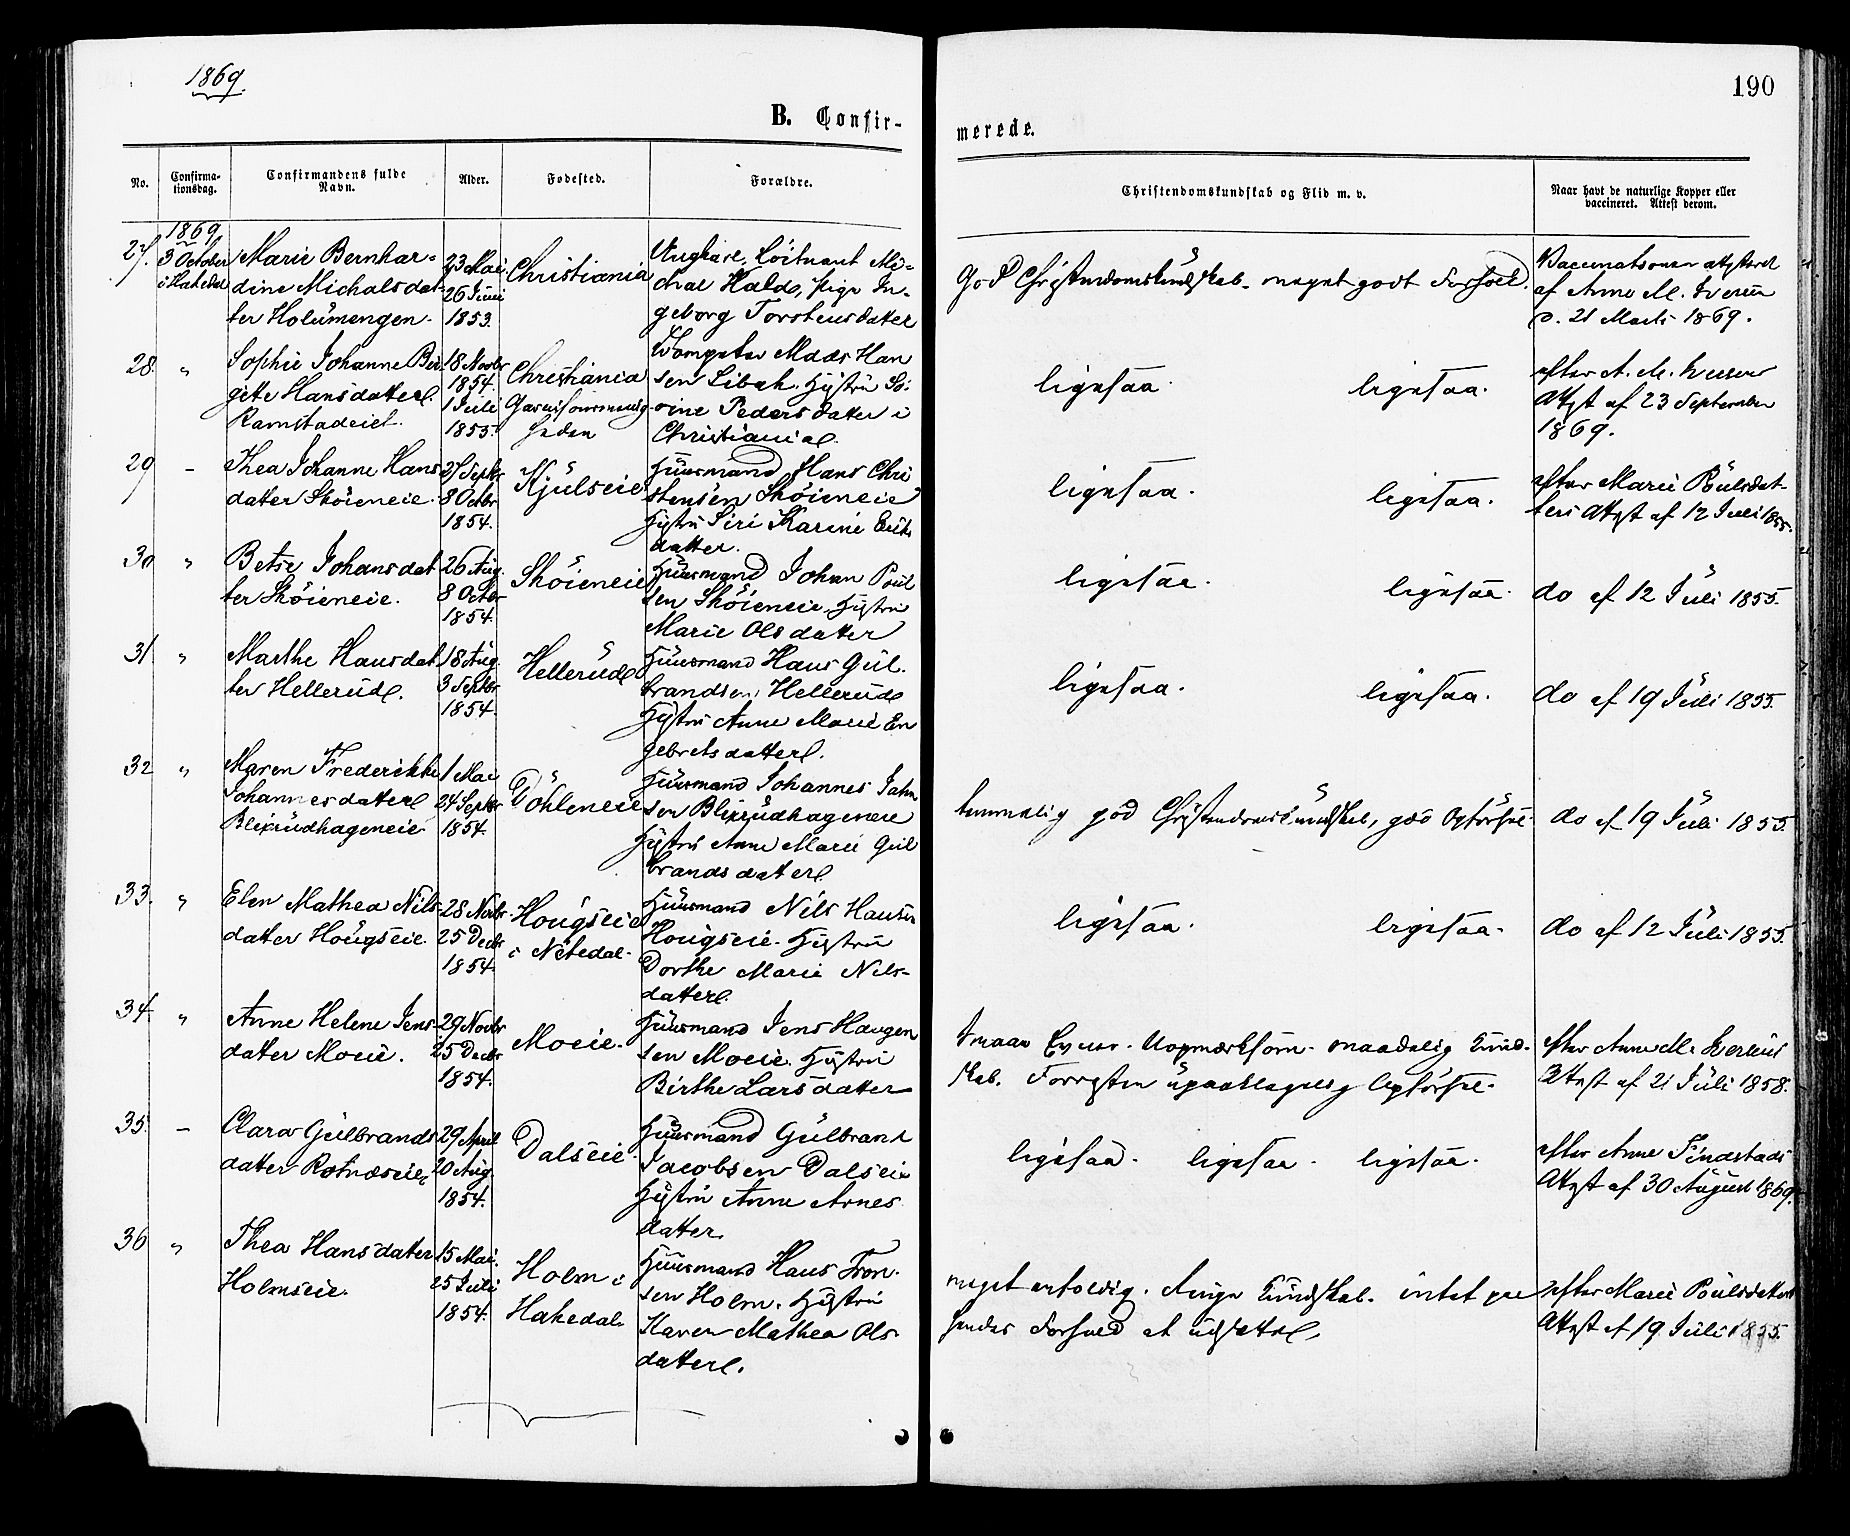 1869.
190
B. Confir-
merede.
No.
Confirma-
tionsdag.
Confirmandens fulde
Navn.
Alder.
Fødested.
Forældre.
Christendomskundskab og Flid m. v.
Naar havt de naturlige Kopper eller
vaccineret. Attest derom.
27.
1869
3 October
i Hakedal
Marie Bernhar-
dine Michalsdat-
ter Holümengen.
23 Mai
26 Juni
1853.
Christiania
Ungkarl, Löitnant Mi-
chal Halds, pige In-
geborg Torstensdatter
God Christendomskundskab. meget godt Forhold.
Vaccinationen attesteret
af Anne M.
d. 21 Marts 1869.
28.
"
Sophie Johanne Bir-
gite Hansdatter
Ramstadeiet.
18 Novbr
1854.
1 Juli
1853.
Christiania
Mads Han
sen Hüstrü
oine Pedersdatter i
Christiania.
ligesaa.
ligesaa.
efter A. M.
Attest af 23 September
1869.
29
–
Thea Johanne Hans
datter Sköieneie.
27 Septbr
8 Octbr
1854.
Kjülseie
Hüusmand Hans Chri
stensen Sköieneie
Hüstrü Siri Karine Eriks
datter.
ligesaa.
ligesaa.
efter Marie Poülsdat-
ters Attest af 12 Juli 1855.
30
"
Betse Johansdat
ter Sköieneie.
26 Aug.
8 Octbr
1854.
Sköieneie
Hüusmand Johan Poül
sen Sköieneie, Hüstrü
Marie Olsdatter
ligesaa.
ligesaa.
do af 12 Jüli 1855.
31
"
Marthe Hansdat
ter Hellerüd.
18 Aug.
3 Septbr
1854.
Hellerüd
Hüusmand Hans Gül-
brandsen Hellerüd
Hüstrü Anne Marie En
gebretsdatter.
ligesaa.
ligesaa.
do af 19 Jüli 1855.
32
"
Maren Frederikke
Johannesdatter
Blixrüdhageneie
1 Mai
24 Septbr
1854.
Döhleneie
Hüusmand Johannes Jahn
sen Blixrüdhageneie
Hüstrü Anne Marie Gül
brandsdatter.
temmelig god Christendomskündskab, god Opförsel.
do af 19 Jüli 1855.
33.
"
Elen Mathea Nils-
datter Hoügseie.
28 Novbr
25 Decbr
1854.
Hoügseie
i Nitedal.
Hüusmand Nils Hansen
Hoügseie. Hüstrü
Dorthe Marie Nils-
datter.
ligesaa.
ligesaa.
do af 12 Jüli 1855.
34.
"
Anne Helene Jens-
datter Moeie.
29 Novbr
25 Decbr
1854.
Moeie.
Hüusmand Jens Haagen
sen Moeie. Hüstrü
Birthe Larsdatter
smaae Evner. Uopmærksom. maadelig Künd-
skab. Forresten üpaaklagelig Opförsel.
efter Anne M.
Attest af 21 Jüli 1858.
35.
–
Clara Gülbrands
datter Rotnæseie
29 April
20 Aug.
1854.
Dalseie
Hüusmand Gülbrand
Jacobsen Dalseie
Hüstrü Anne Arnes
datter.
ligesaa.
ligesaa.
ligesaa.
efter Anne Findstads
Attest af 30 August 1869.
36
"
Thea Hansdatter
Holmseie.
15 Mai.
25 Juli
1854.
Holm i
Hakedal
Hüusmand Hans Tron-
sen Holm. Hüstrü
Karen Mathea Ols-
datter.
meget enfoldig. Ringe Kündskab. intet paa
hendes Forhold at üdsætte.
efter Marie Poülsdatters
Attest af 19 Jüli 1855.